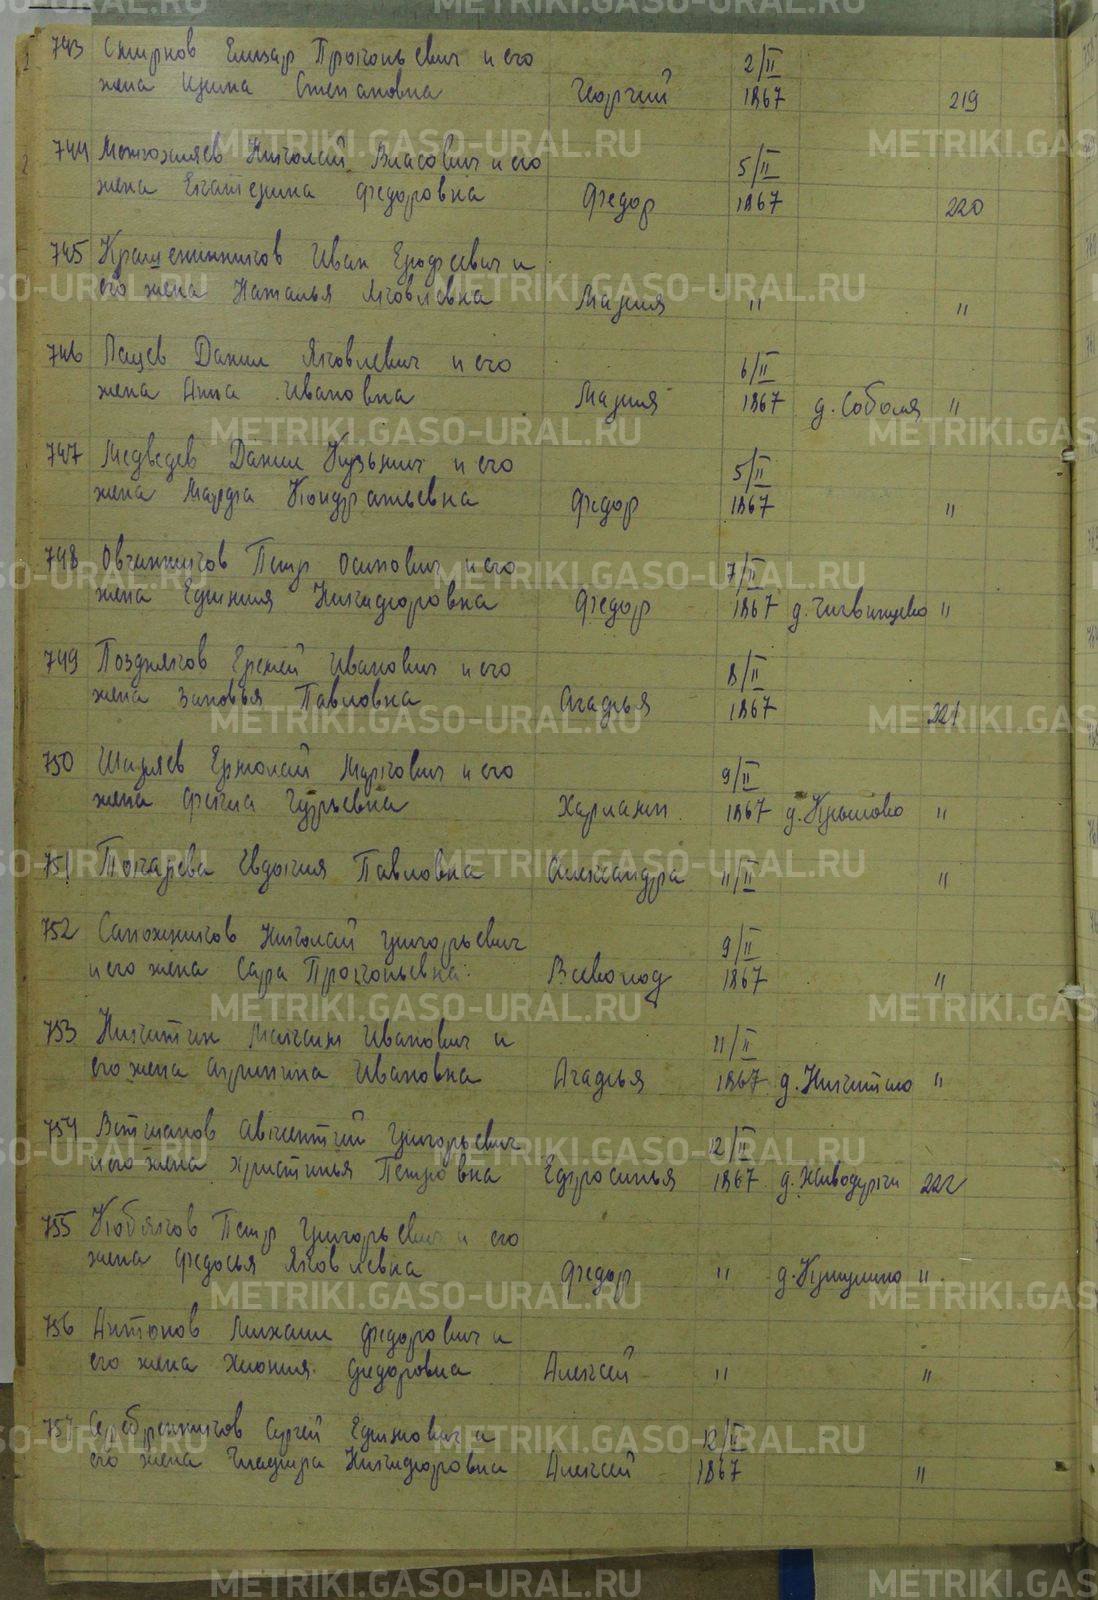 743 Смирнов Елизар Прокопьевич и его
жена Ирина Степановна Георгий 2/II 1867 219
744 Николай Власович и его
жена Екатерина Федоровна Федор 5/II 1867 220
745 Крашенинников Иван Ерофеевич и
его жена Наталья Яковлевна Мария " "
746 Пацев Данил Яковлевич и его
жена Анна Ивановна Мария 6/II 1867 д. Соболя "
747 Медведев Данил Кузьмич и его
жена Марфа Кондратьевна Федор 5/II 1867 "
748 Овчинников Петр Осипович и его
жена Ефимия Никифоровна Федор 7/II 1867 д. "
749 Поздняков Еремей Иванович и его
жена Зиновья Павловна Агафья 8/II 1867 221
750 Ширяев Ермолай Маркович и его
жена Фекла Гурьевна Харлампи 9/II 1867 д. Крылово "
751 Токарева Евдокия Павловна Александра 11/II "
752 Сапожников Николай Григорьевич
и его жена Сара Прокопьевна Всеволод 9/II 1867 "
753 Никитин Максим Иванович и
его жена Акулина Ивановна Агафья 11/II 1867 д. Никитино "
754 Авксентий Григорьевич
и его жена Христинья Петровна Ефросинья 12/II 1867 д. Живодерки 222
755 Кобяков Петр Григорьевич и его
жена Федосья Яковлевна Федор " д. "
756 Антонов Михаил Федорович и
его жена Хиония Федоровна Алексей " "
757 Серебренников Сергей Ефимович и
его жена Глафира Никифоровна Алексей 12/II 1867 "
METRIKI.GASO-URAL.RU